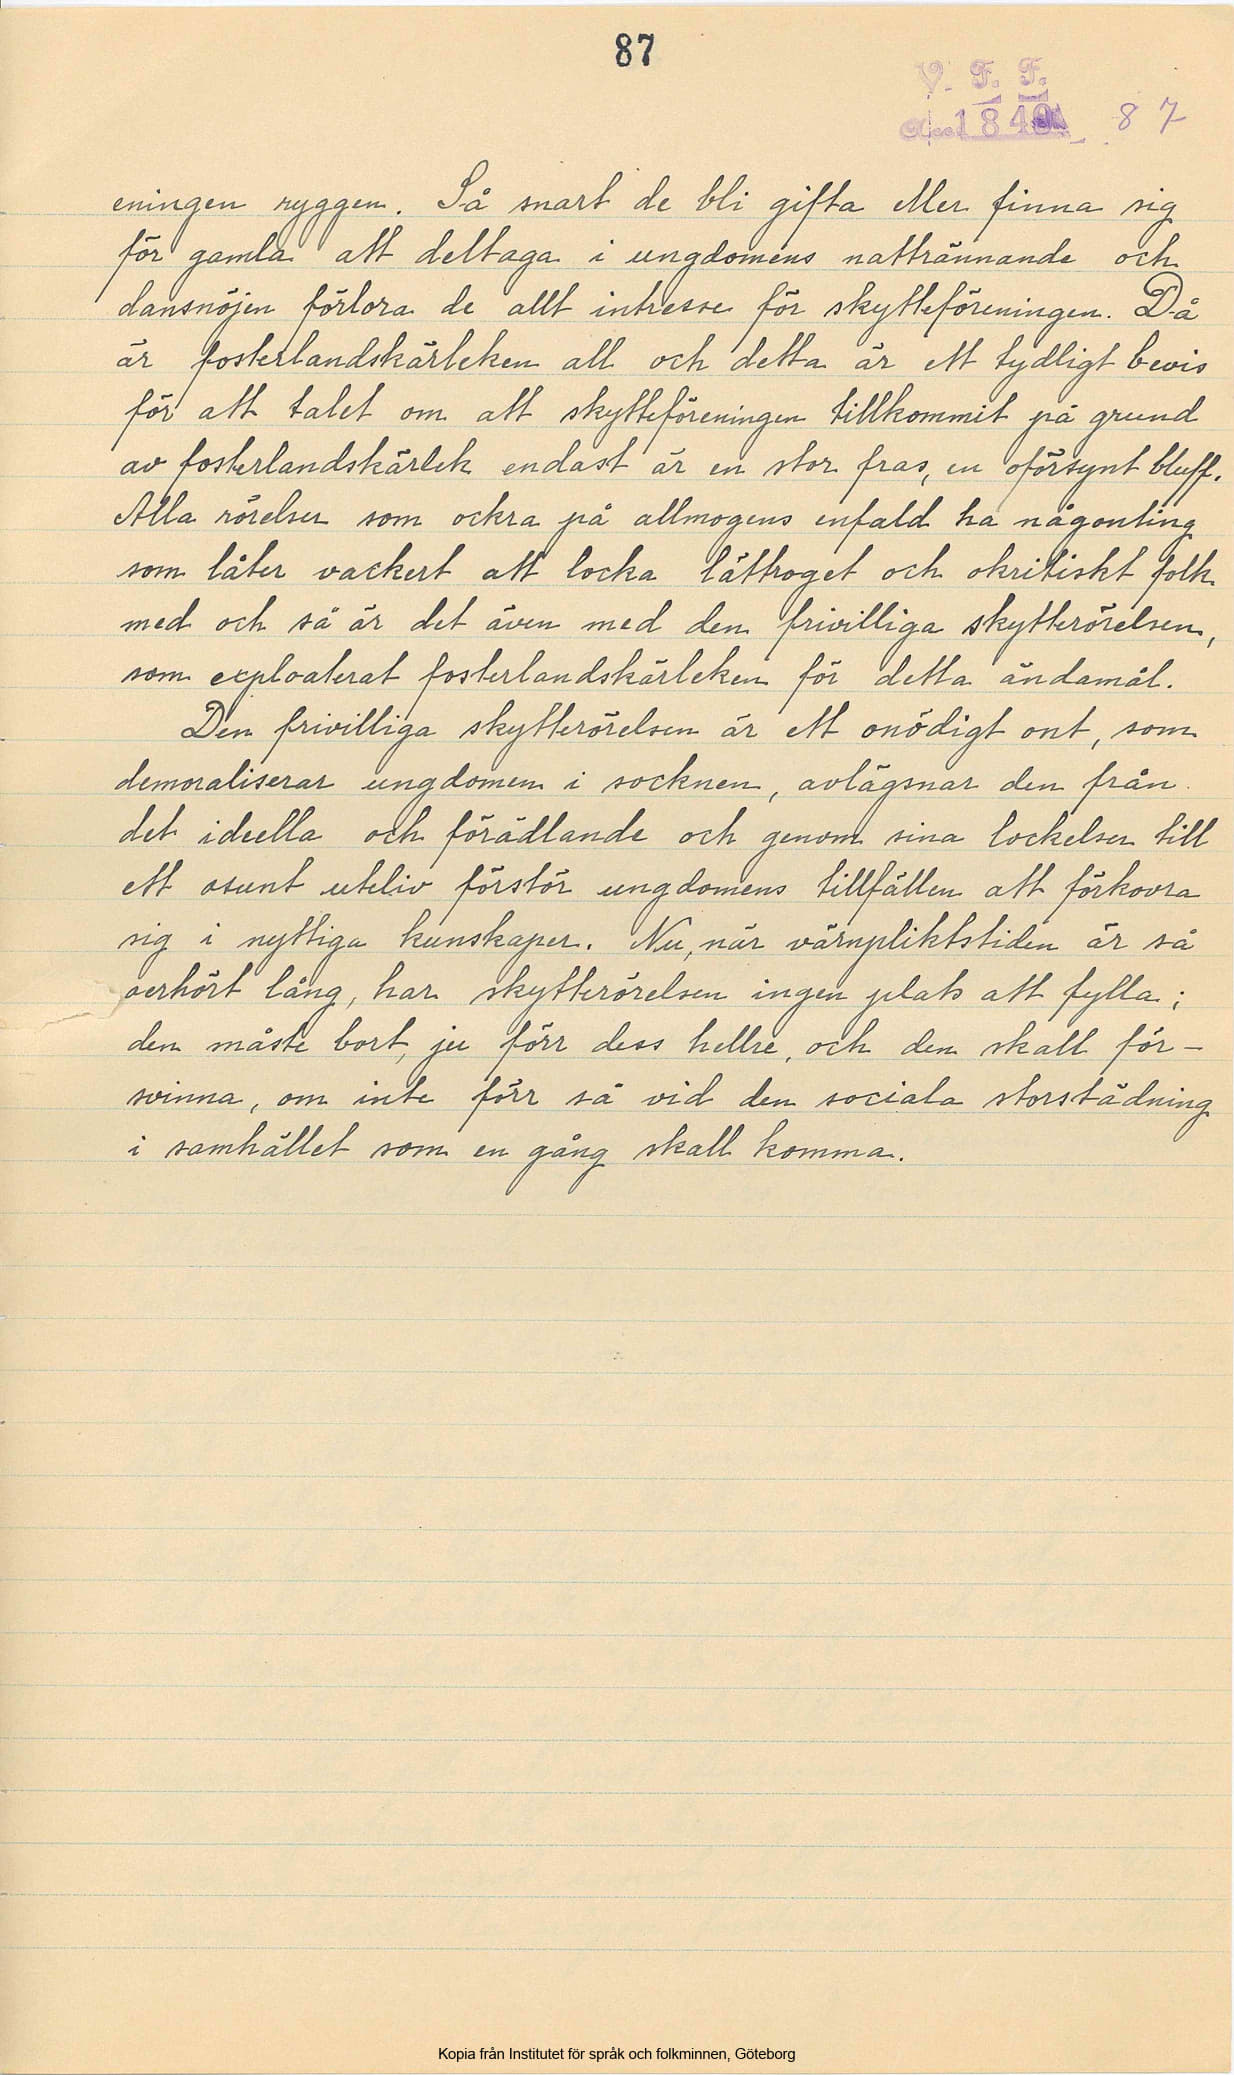 87
V. F. F.
Acc. 1840 87
eningen ryggen. Så snart de bli gifta eller finna sig
för gamla att deltaga i ungdomens nattrännande och
dansnöjen förlora de allt intresse för skytteföreningen. Då
är fosterlandskärleken all och detta är ett tydligt bevis
för att talet om att skytteföreningen tillkommit på grund
av fosterlandskärlek endast är en stor fras, en oförsynt bluff.
Alla rörelser som ockra på allmogens enfald ha någonting
som låter vackert att locka lättroget och okritiskt folk
med och så är det även med den frivilliga skytterörelsen,
som exploaterat fosterlandskärleken för detta ändamål.
Den frivilliga skytterörelsen är ett onödigt ont, som
demoraliserar ungdomen i socknen, avlägsnar den från
det ideella och förädlande och genom sina lockelser till
ett osunt uteliv förstör ungdomens tillfällen att förkovra
sig i nyttiga kunskaper. Nu, när värnpliktstiden är så
oerhört lång, har skytterörelsen ingen plats att fylla;
den måste bort, ju förr dess hellre, och den skall för-
svinna, om inte förr så vid den sociala storstädning
i samhället som en gång skall komma.
Kopia från Institutet för språk och folkminnen, Göteborg